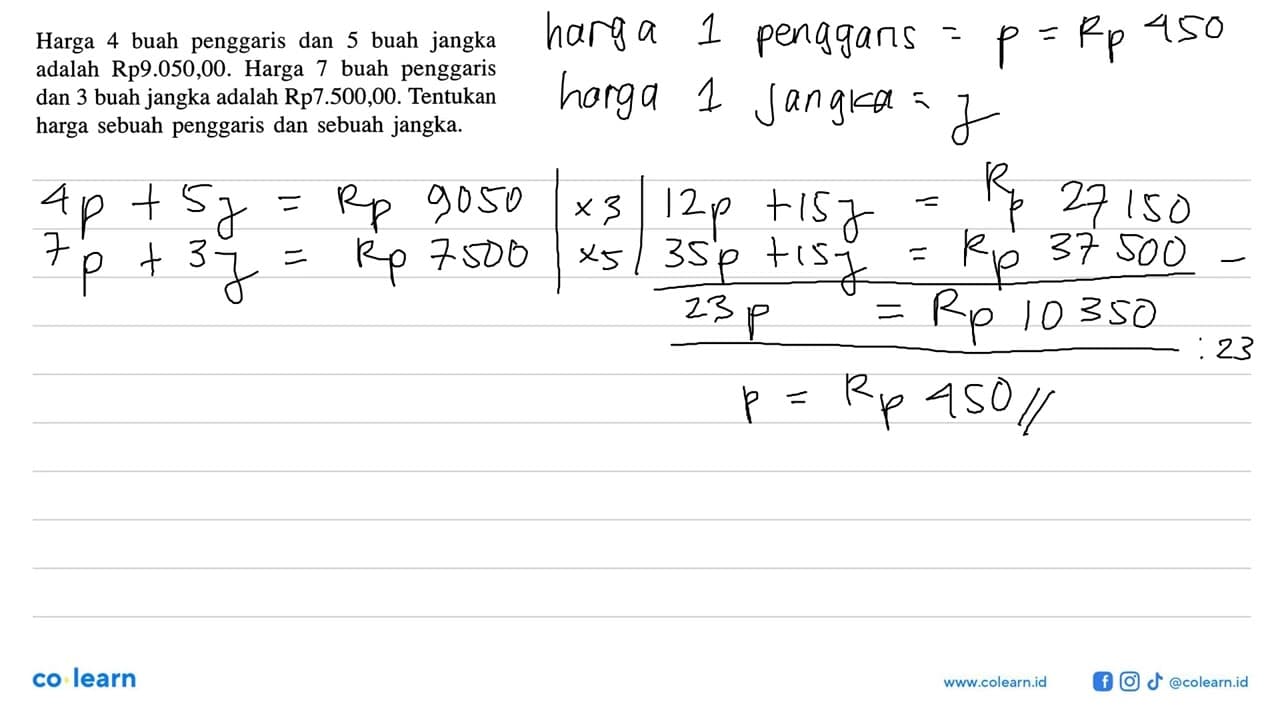 Harga 4 buah penggaris dan 5 buah jangka
adalah Rp9.050,00. Harga 7 buah penggaris
dan 3 buah jangka adalah Rp7.500,00. Tentukan
harga sebuah penggaris dan sebuah jangka.
harga 1 penggaris = p = Rp 450
harga 1 jangka = j
4p + 5j = Rp 9050 | x 3 | 12p + 15j = Rp 27 150
7p + 3j = Rp 7500 | x5 | 35p + 15j = Rp 37 500 -
23p = Rp 10 350
: 23
p = Rp 450 //
co learn
www.colearn.id
@colearn.id